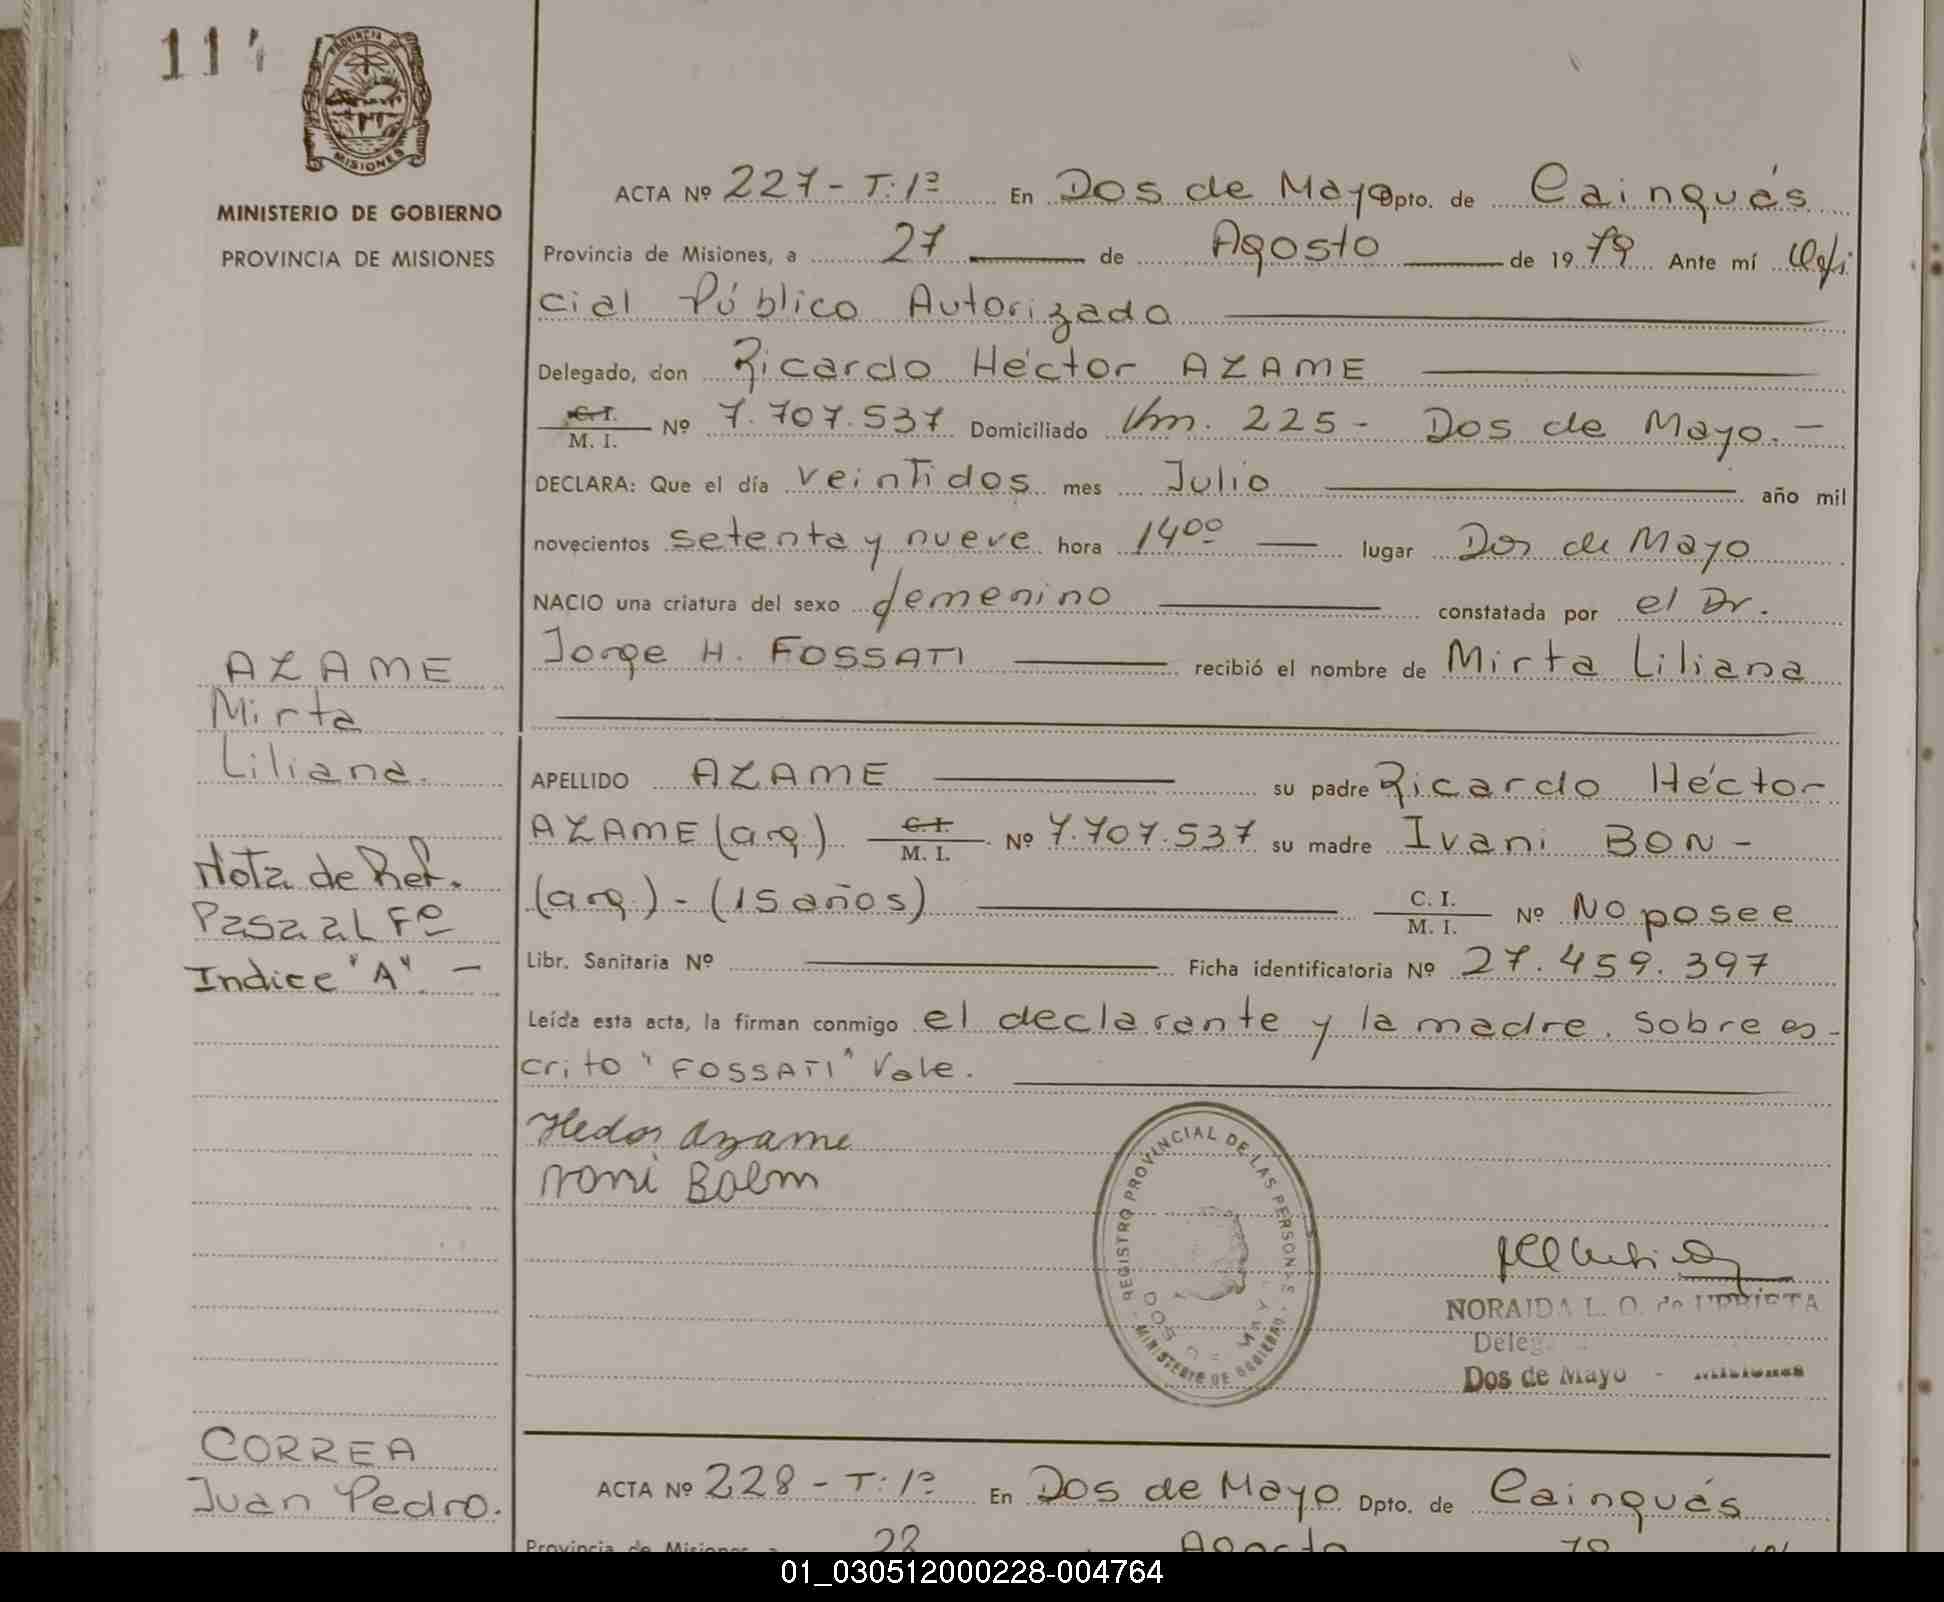 11
PROVINCIA DE
MISIONES
MINISTERIO DE GOBIERNO
PROVINCIA DE MISIONES
ACTA Nº 227 - T: 1º En Dos de Mayo Dpto. de Cainguás
Provincia de Misiones, a 27 de Agosto de 1979 Ante mí Ofi
cial Público Autorizado
Delegado, don Ricardo Héctor AZAME
C. I. / M. I. Nº 7.707.537 Domiciliado Km. 225 - Dos de Mayo. -
DECLARA: Que el día veintidos mes Julio año mil
novecientos setenta y nueve hora 14ºº lugar Dos de Mayo
NACIO una criatura del sexo femenino constatada por el Dr.
Jorge H. FOSSATI recibió el nombre de Mirta Liliana
AZAME
Mirta
Liliana.
APELLIDO AZAME su padre Ricardo Héctor
AZAME (arg.) C. I. / M. I. Nº 7.707.537 su madre Ivani BON -
(arg.) - (15 años) C. I. / M. I. Nº No posee
Libr. Sanitaria Nº Ficha identificatoria Nº 27.459.397
Leída esta acta, la firman conmigo el declarante y la madre. Sobre es-
crito "FOSSATI" Vale.
Nota de Ref.
Pasa al Fº
Indice "A" -
Hedor Azame
REGISTRO PROVINCIAL DE LAS PERSONAS
MINISTERIO DE GOBIERNO
DOS DE MAYO
NORAIDA L. O. de URRIETA
Deleg
Dos de Mayo - Misiones
CORREA
Juan Pedro.
ACTA Nº 228 - T: 1º En Dos de Mayo Dpto. de Cainguás
Provincia de Misiones, a 28 Agosto 79
01_030512000228-004764